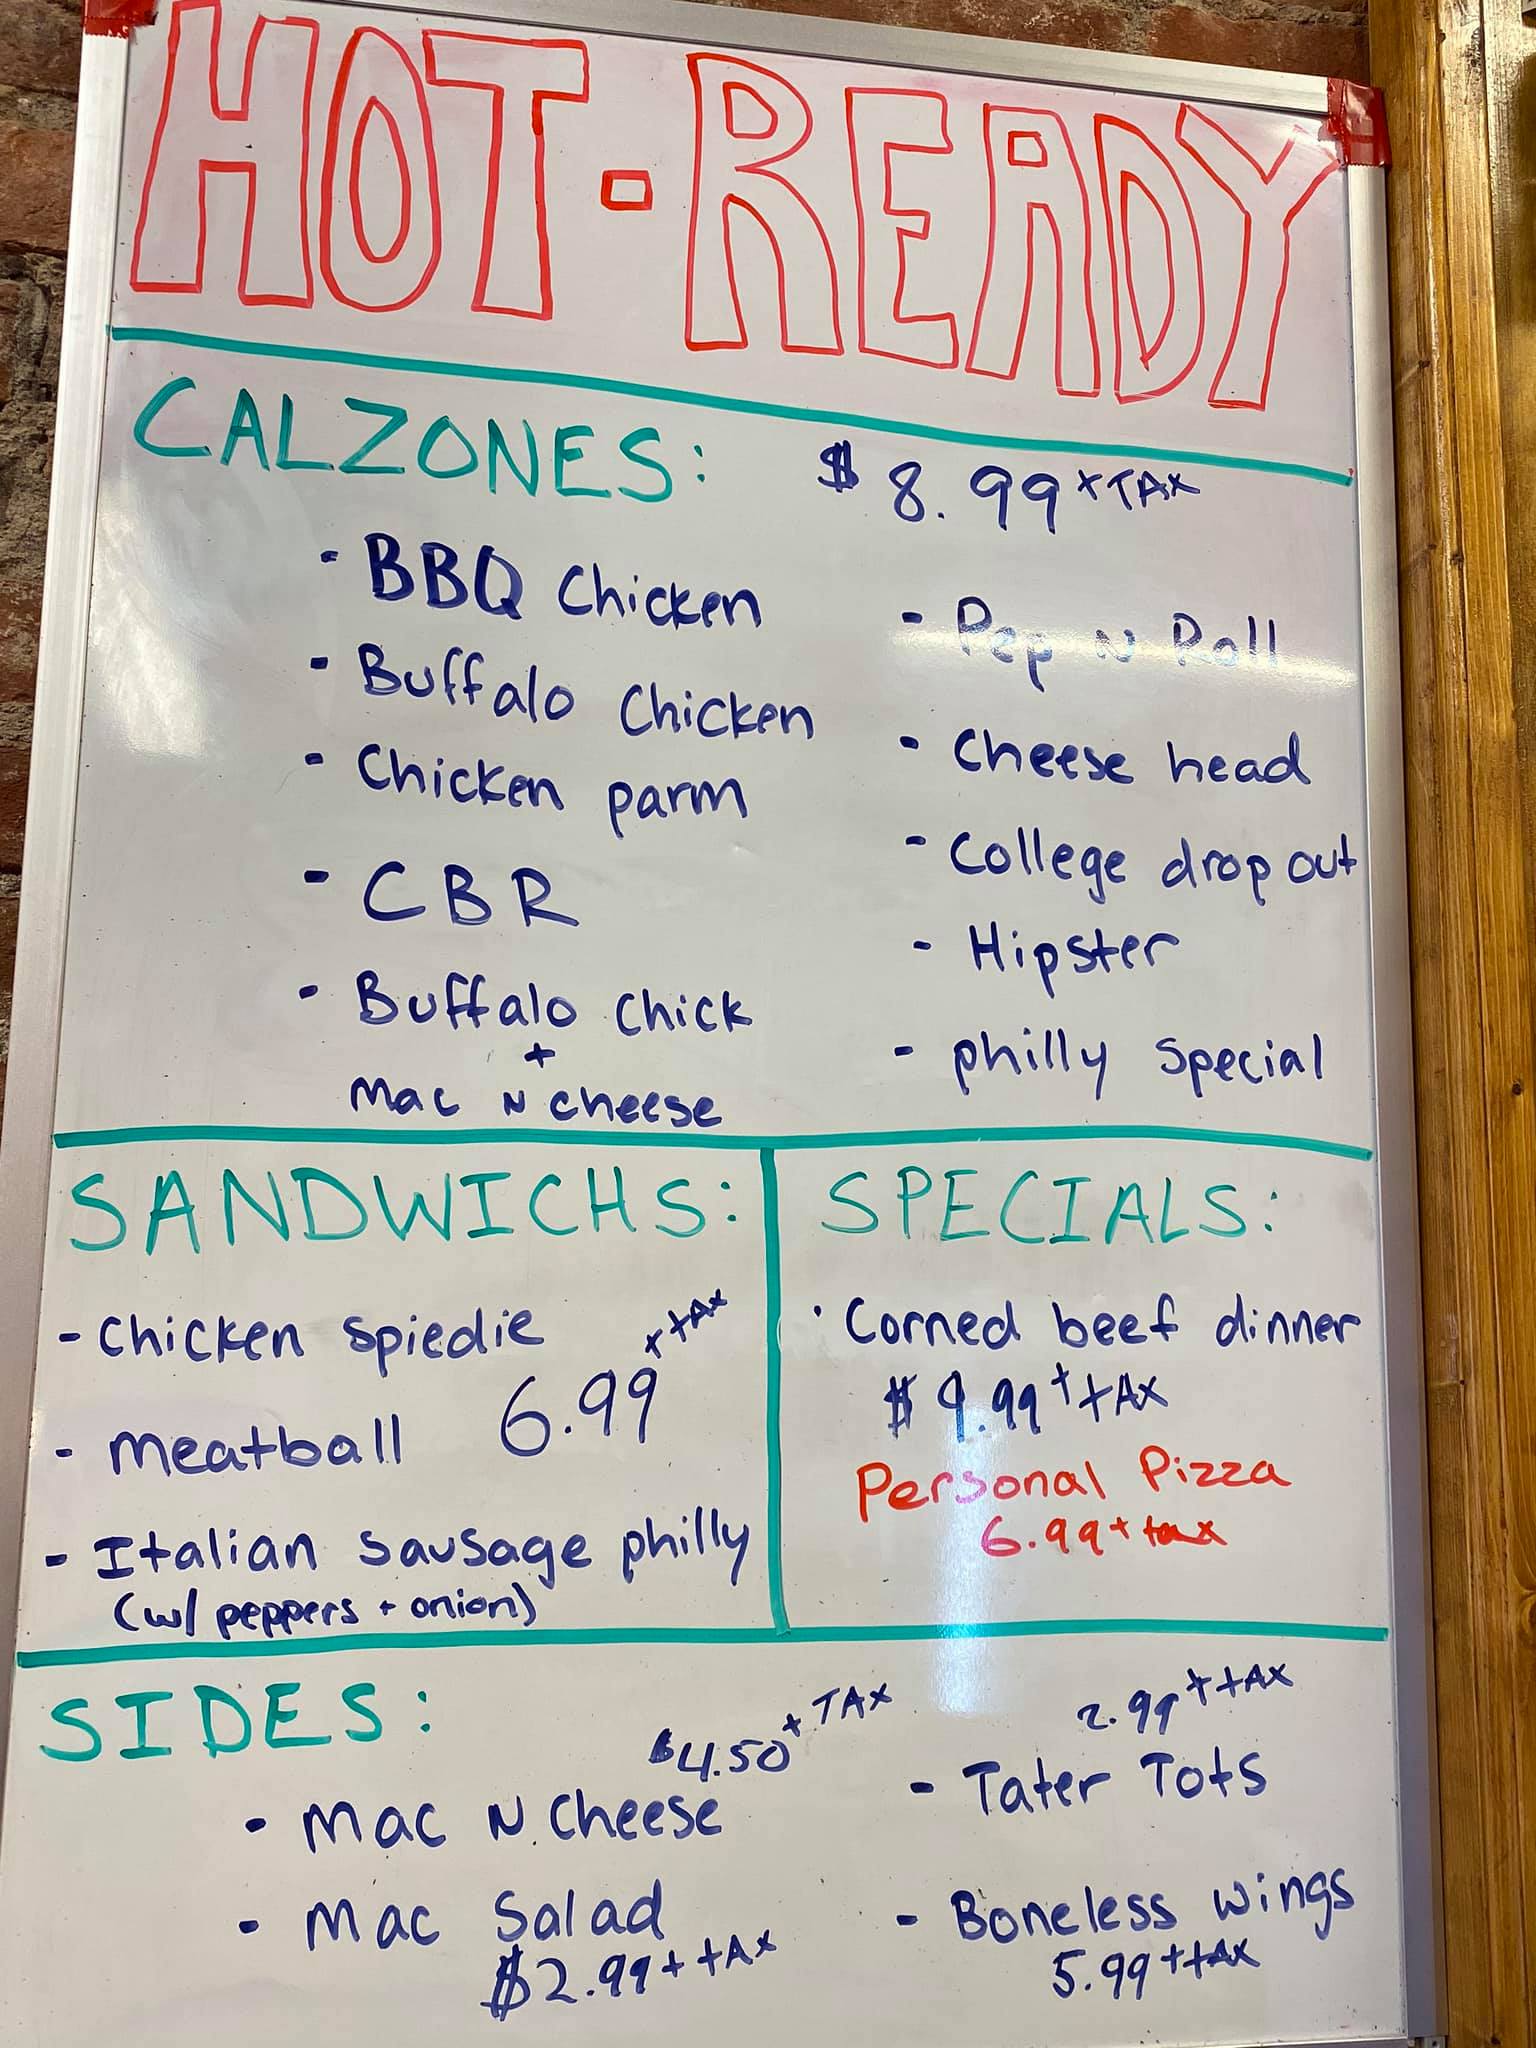 HOT-READY
CALZONES: $8.99 + TAX
- BBQ Chicken
- Buffalo Chicken
- Chicken parm
- CBR
- Buffalo Chick
+
Mac N cheese
- Pep N Roll
- Cheese head
- College drop out
- Hipster
- philly special
SANDWICHS:
- Chicken spiedie
- meatball
6.99 + tax
- Italian sausage philly
(w/ peppers + onion)
SPECIALS:
· Corned beef dinner
$9.99 + tAx
Personal Pizza
6.99 + tax
SIDES:
$4.50 + TAX
- Mac N Cheese
- Mac Salad
$2.99 + tAx
2.99 + tAx
- Tater Tots
- Boneless wings
5.99 + tAx